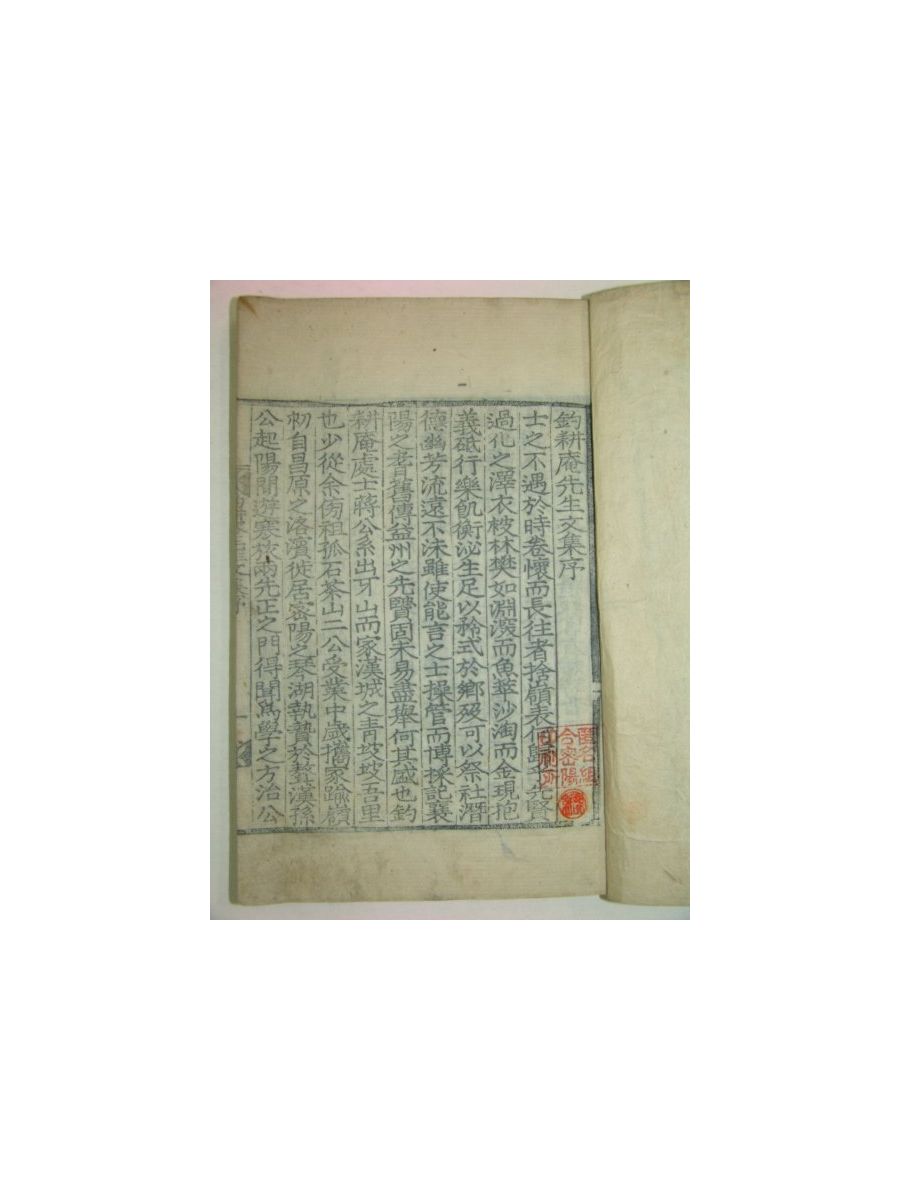 釣耕庵先生文集序
士之不遇於時卷懷而長往者捨嶺表何歸乎先賢
過化之澤衣被林樊如淵濲而魚萃沙淘而金現抱
義砥行樂飢衡泌生足以矜式於鄉歿可以祭社潛
德幽芳流遠不沬雖使能言之士操管而博採記襄
陽之耆舊傳益州之先賢固未易盡舉何其盛也釣
耕庵處士蔣公系出牙山而家漢城之靑坡坡吾里
也少從余傍祖孤石茶山二公受業中歲攜家踰嶺
初自昌原之洛濱徙居密陽之琴湖執贄於聱漢孫
公起陽間遊寒旅兩先正之門得聞爲學之方治公